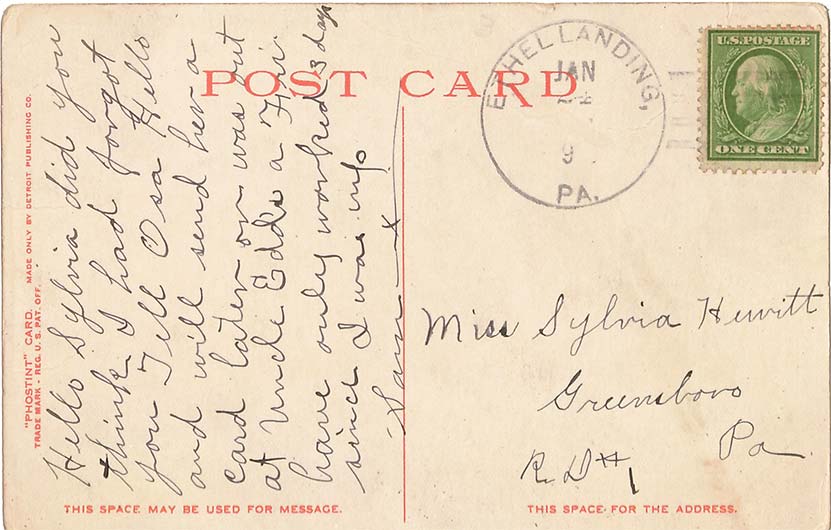 POST CARD
"PHOSTINT" CARD. MADE ONLY BY DETROIT PUBLISHING CO.
TRADE MARK - REG. U.S. PAT. OFF.
Hello Sylvia did you
think I had forgot
you Tell Osa Hello
and will send her a
card later on was out
at Uncle Edds a Fri
have only worked 3 days
since I was up
Sam
THIS SPACE MAY BE USED FOR MESSAGE.
ETHEL LANDING,
JAN
24
9
PA.
U.S. POSTAGE
ONE CENT
Miss Sylvia Hewitt
Greensboro
Pa
R. D # 1
THIS SPACE FOR THE ADDRESS.